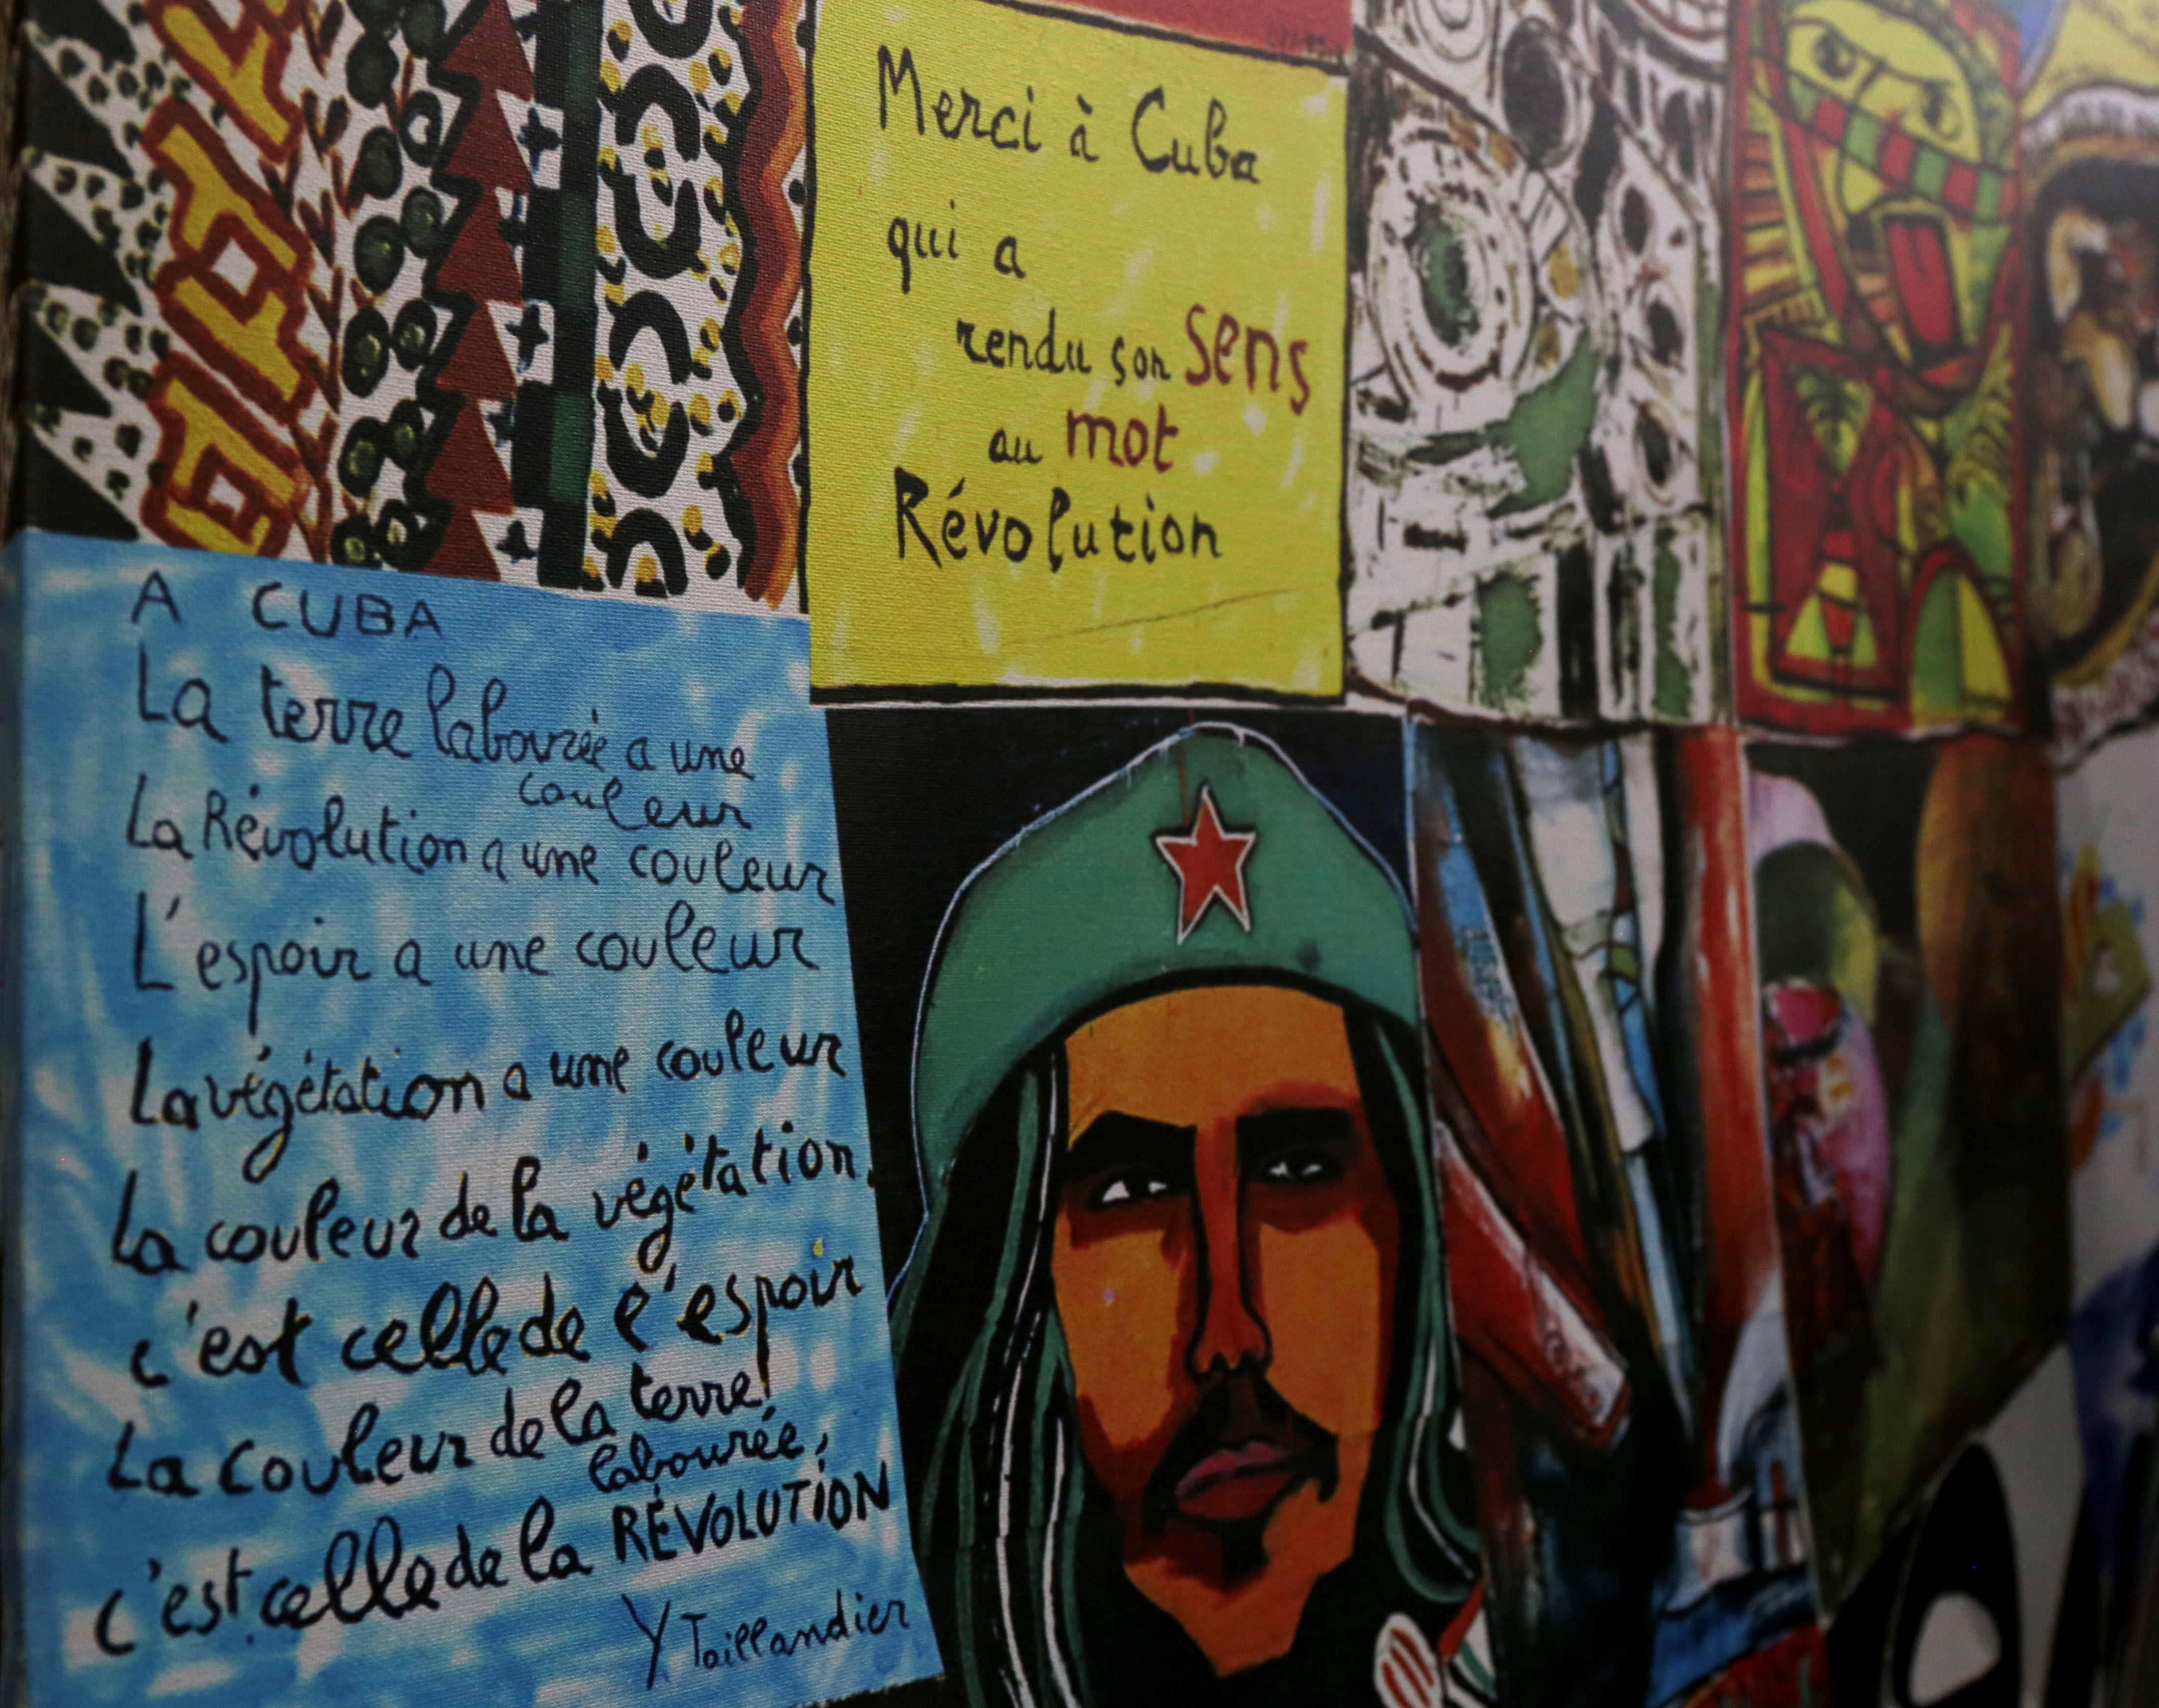 Merci à Cuba
qui a
rendu son sens
au mot
Révolution
A CUBA
La terre labourée a une
couleur
La Révolution a une couleur
L'espoir a une couleur
La végétation a une couleur
La couleur de la végétation,
c'est celle de l'espoir
La couleur de la terre
labourée,
c'est celle de la RÉVOLUTION
Y Taillandier